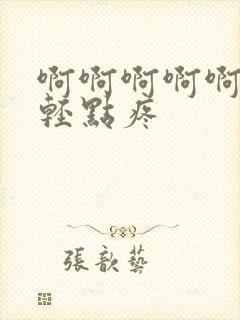 啊啊啊啊啊
輕點疼
張歆藝